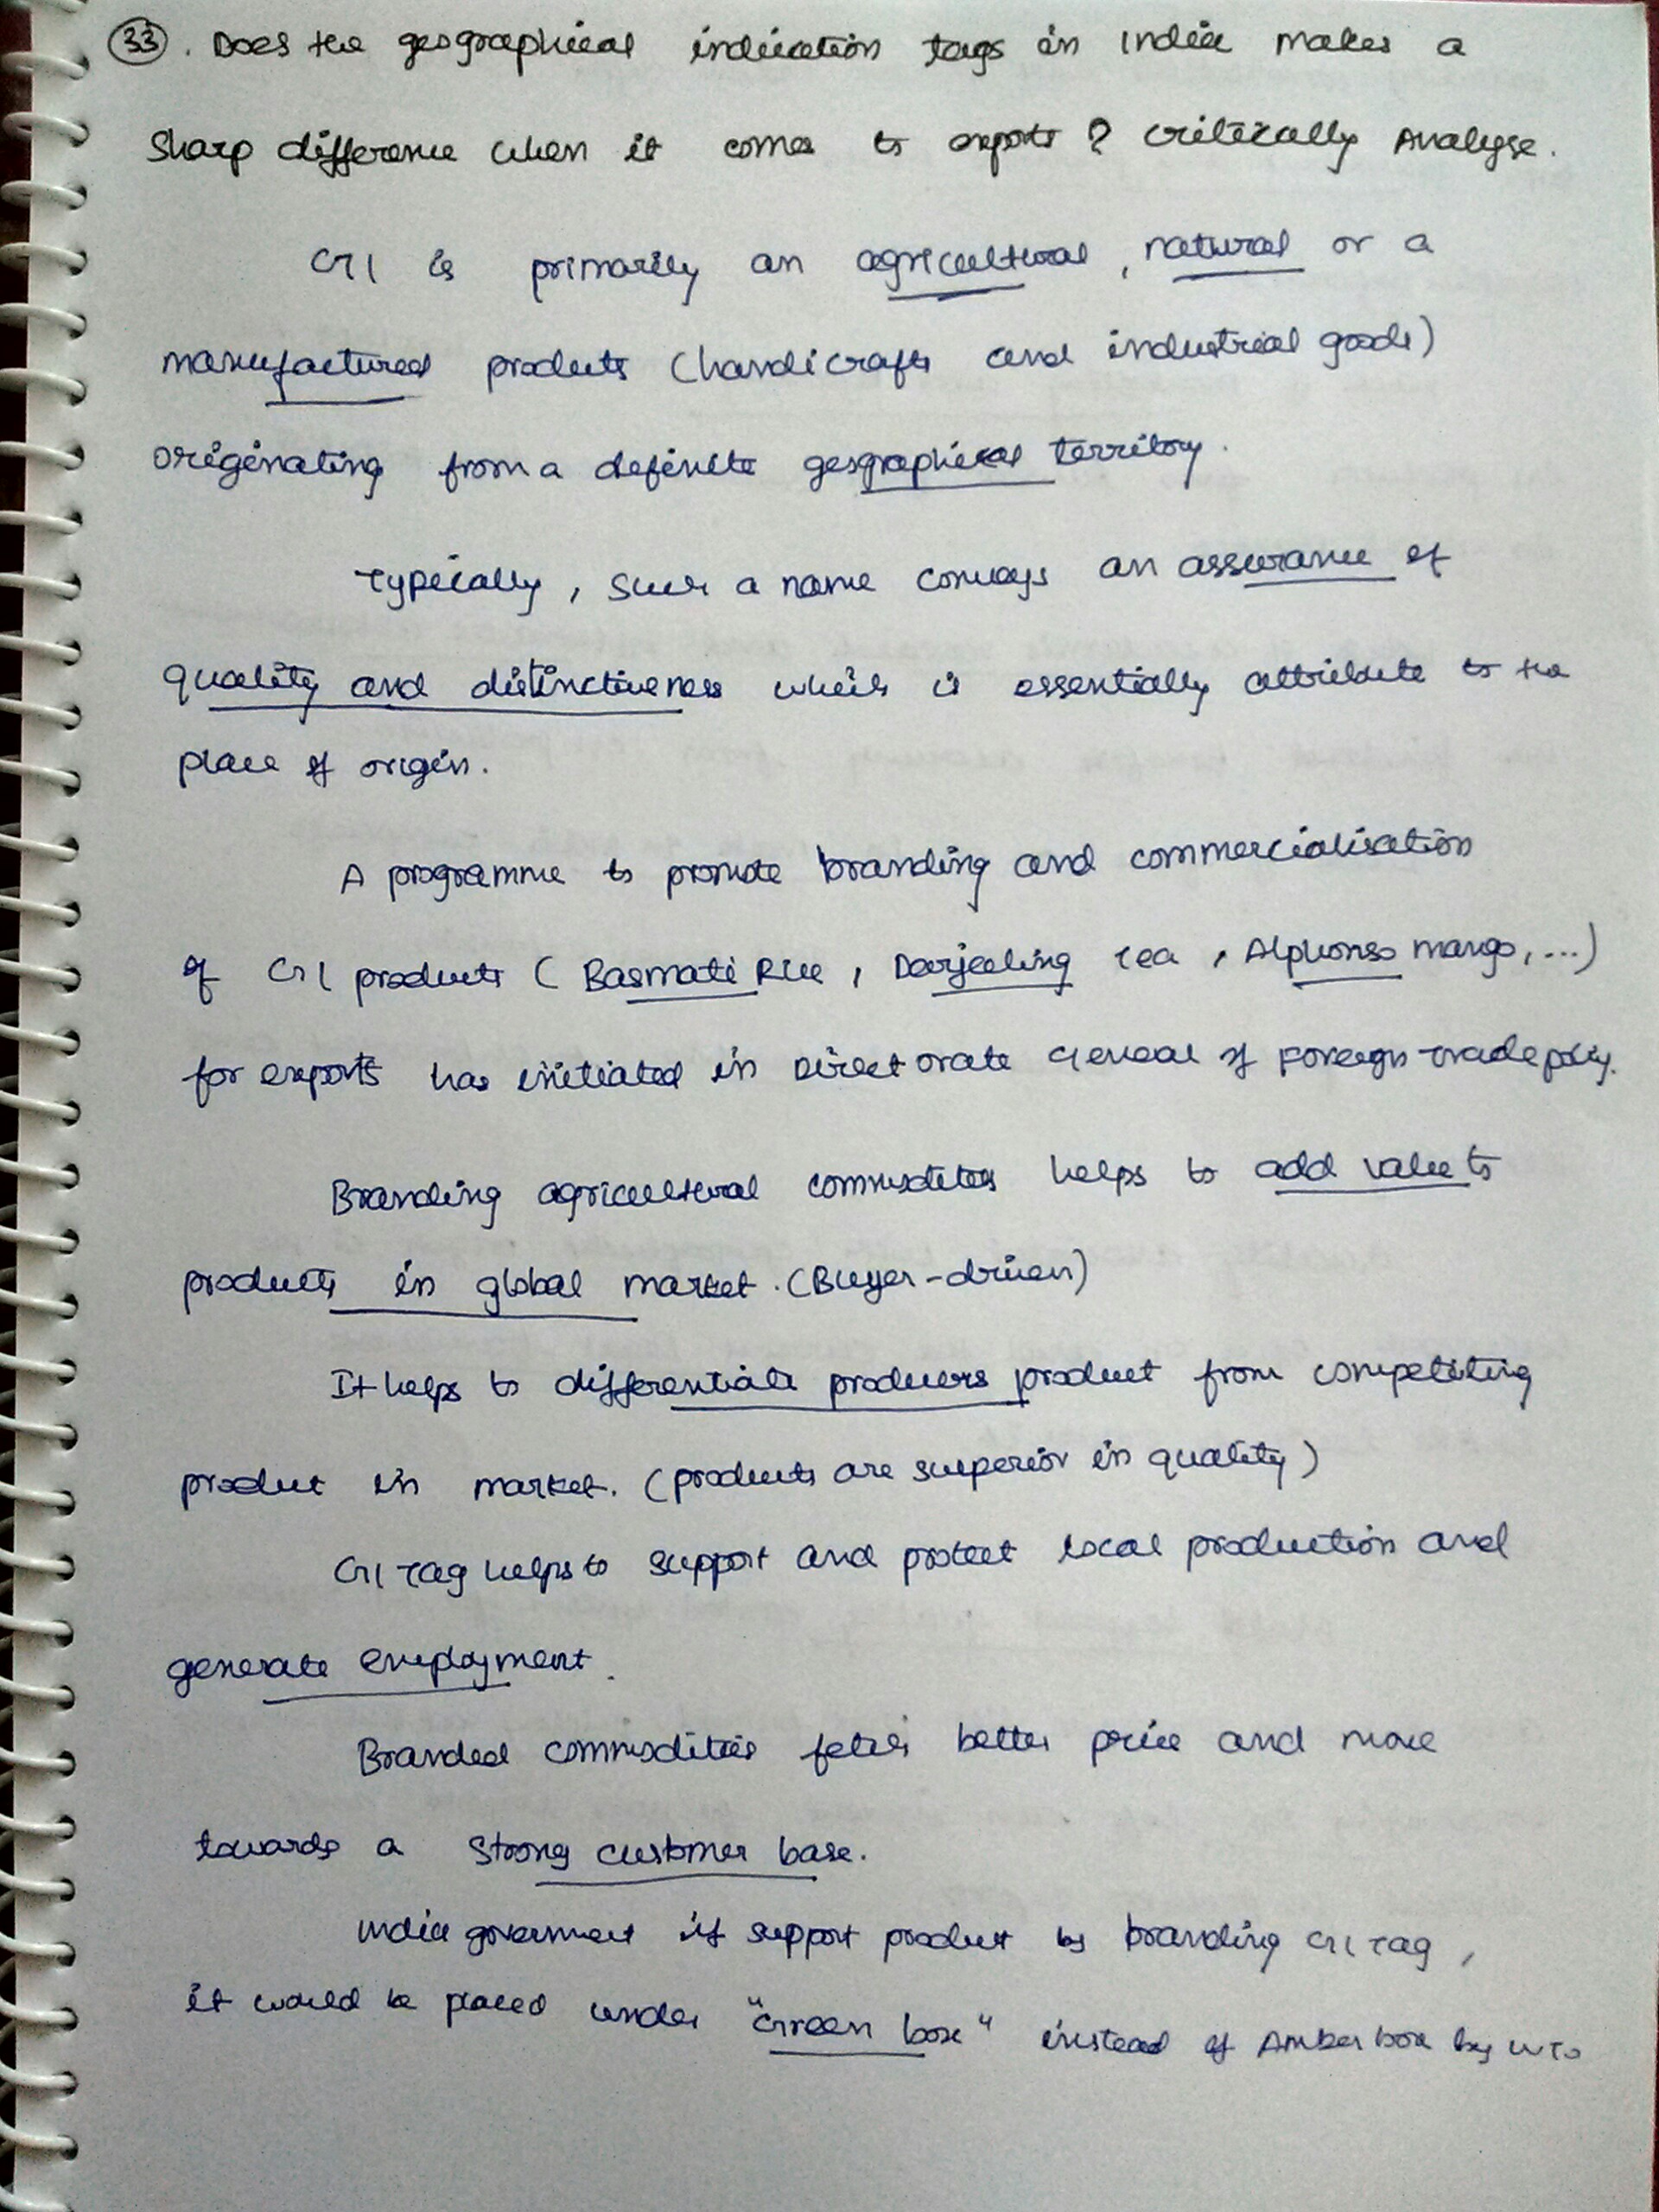 33. Does the geographical indication tags in India makes a
sharp difference when it comes to exports? Critically Analyse.
GI is primarily an agricultural, natural or a
manufactured products (handicrafts and industrial goods)
originating from a definite geographical territory.
Typically, such a name conveys an assurance of
quality and distinctiveness which is essentially attribute to the
place of origin.
A programme to promote branding and commercialisation
of GI products (Basmati Rice, Darjeeling Tea, Alphonso mango,...)
for exports has initiated in Directorate General of Foreign trade policy.
Branding agricultural commodities helps to add value to
products in global market. (Buyer-driven)
It helps to differentiate producers product from competiting
product in market. (products are superior in quality)
GI Tag helps to support and protect local production and
generate employment.
Branded commodities fetch better price and move
towards a strong customer base.
India goverment if support product by branding GI Tag,
it would be placed under "Green box" instead of Amber box by WTO